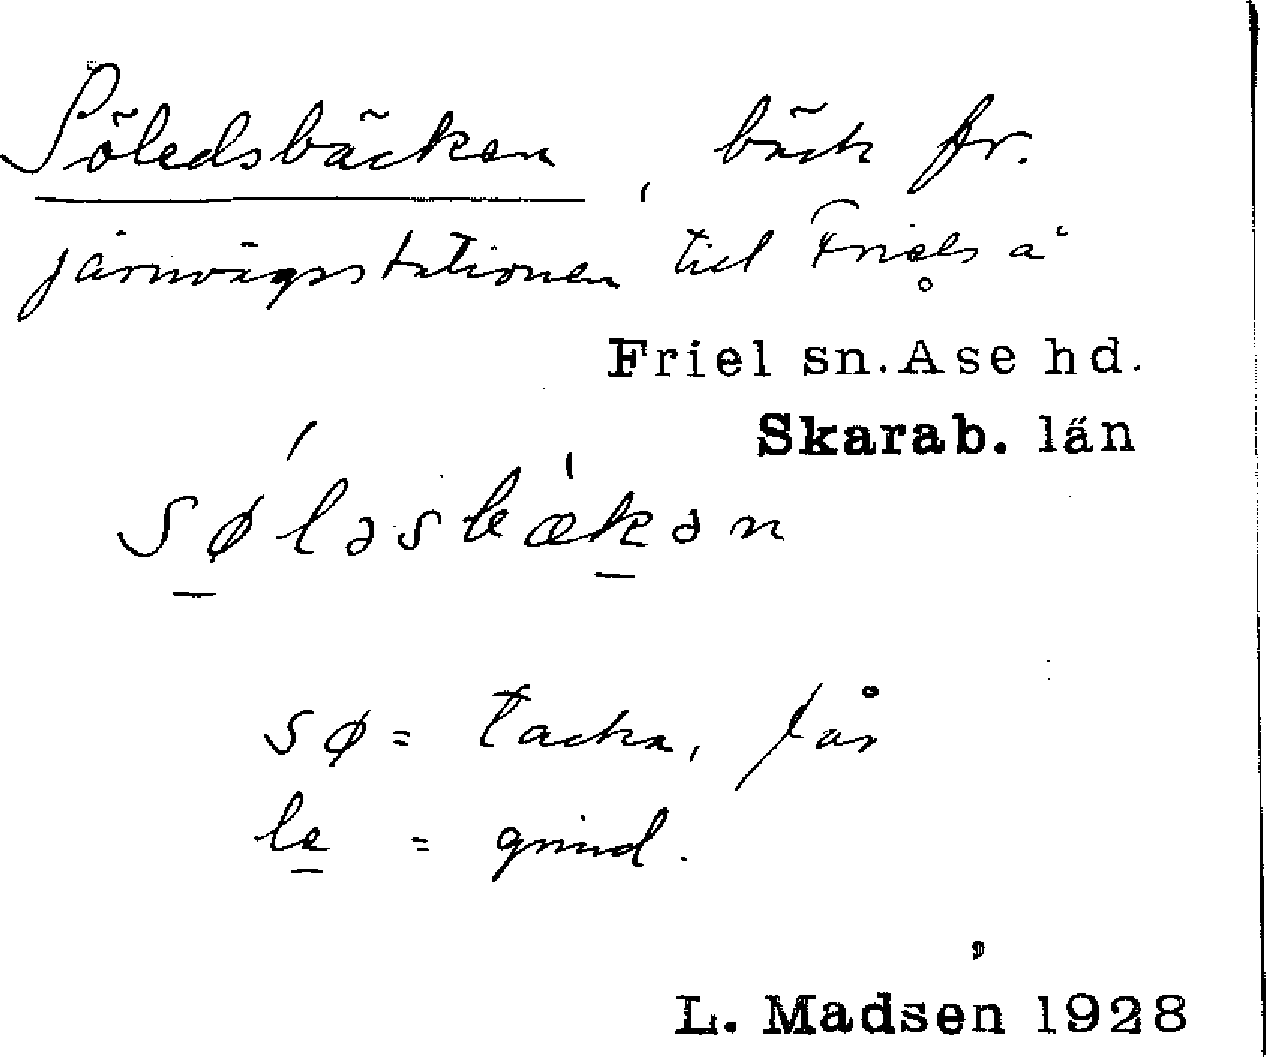 Söledsbäcken, bäck fr.
järnvägsstationen till Friels å
Friel sn. Åse hd.
Skarab. län
sø̱ləsbæḵən
sø = tacka, får
le̱ = grind.
L. Madsen 1928